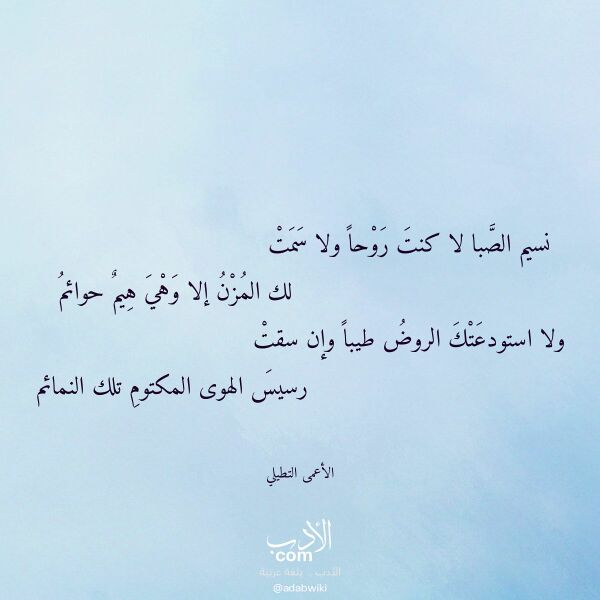 نسيم الصَّبا لا كنتَ رَوْحاً ولا سَمَتْ
لك المُزْنُ إلا وَهْيَ هِيمٌ حوائمُ
ولا استودعَتْكَ الروضُ طيباً وإن سقتْ
رسيسَ الهوى المكتومِ تلك النمائم
الأعمى التطيلي
الأدب
com
الأدب .. بلغة عربية
@adabwiki